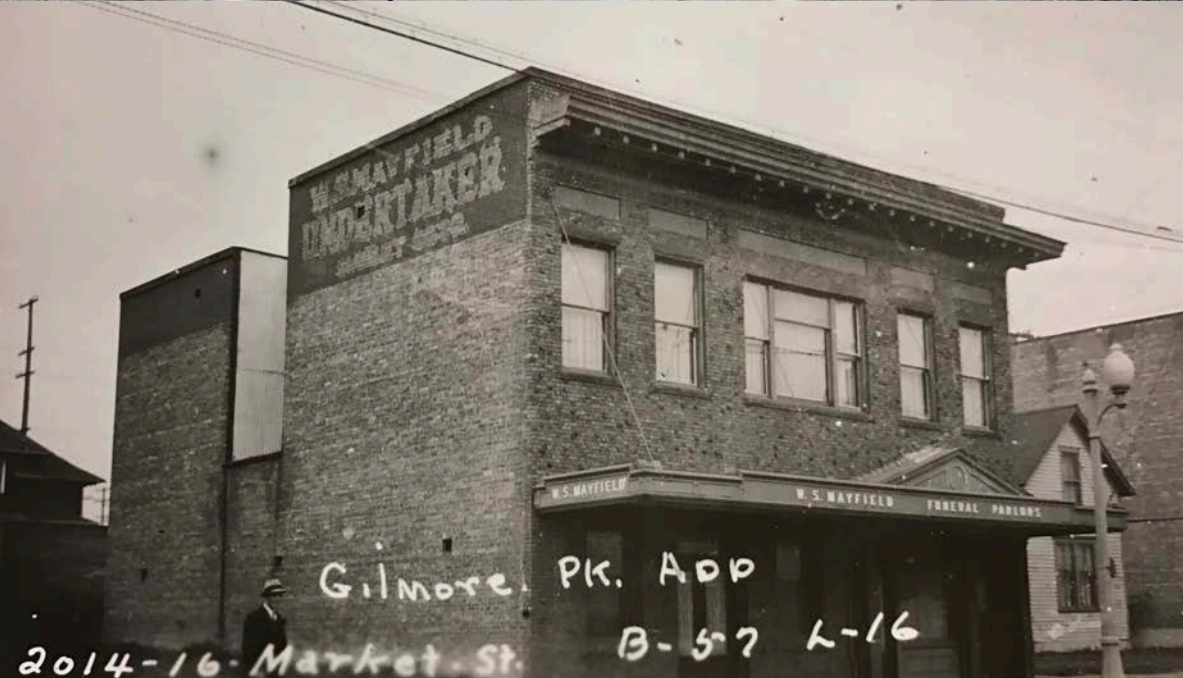 W. S. MAYFIELD
UNDERTAKER
W. S. MAYFIELD
W. S. MAYFIELD FUNERAL PARLORS
Gilmore. PK. ADD
B-57 L-16
2014-16-Market. St.